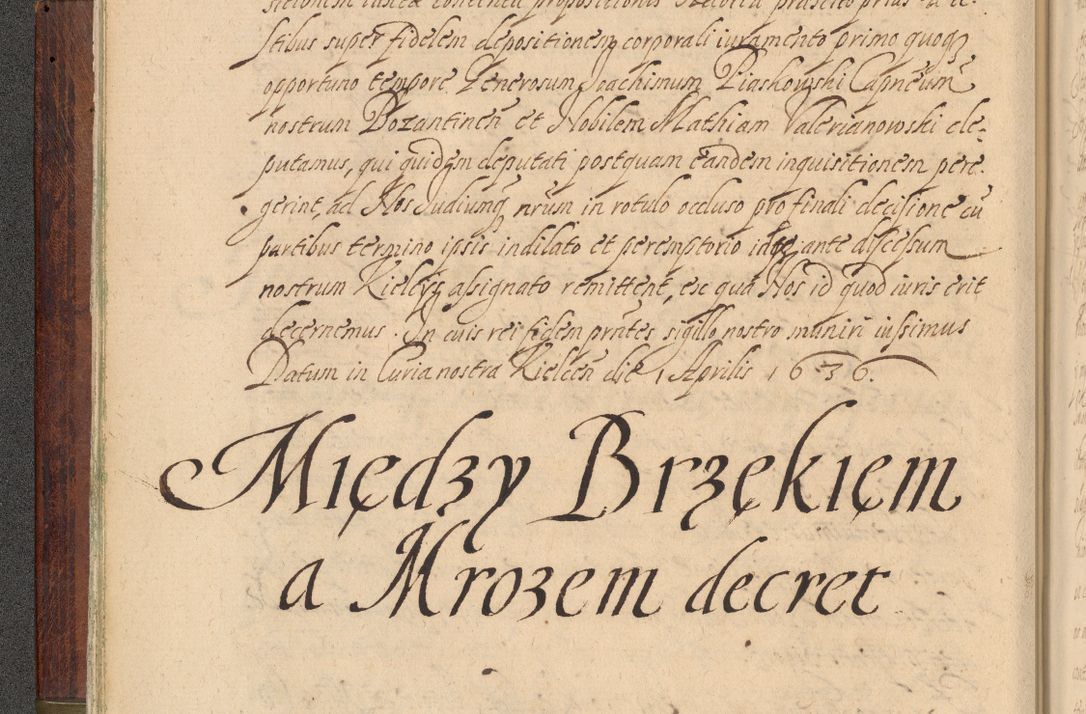 sitionem iuxta continentia propositionis Actorea præscito prius a te-
stibus super fidelem depositionem corporali iuramento primo quoq
opportuno tempore Generosum Joachimum Piaskowski Capneum
nostrum Bozantinen et Nobilem Mathiam Valerianowski de-
putamus, qui quidem deputati postquam eandem inquisitionem pere-
gerint, ad Nos Judiumq nrum in rotulo occluso pro finali decisione cu
partibus termino ipsis indilato et peremptorio ante discessum
nostrum Kielcys assignato remittent, ex qua Nos id quod iuris erit
decernemus. In cuis rei fidem prntes sigillo nostro muniri iussimus
Datum in Curia nostra Kielcen die 1 Aprilis 1636.
Między Brzękięm
a Mrozem decret